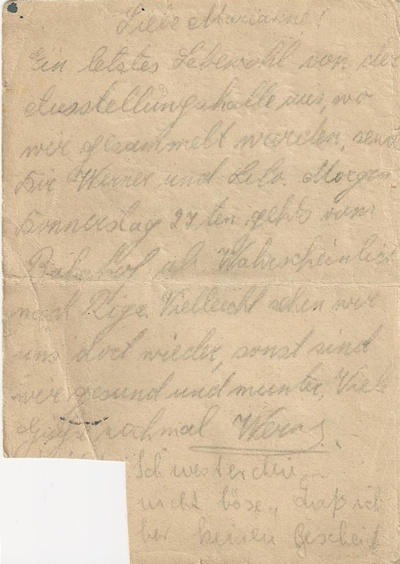 Liebe Marianne!
Ein letztes Lebewohl von der
Ausstellungshalle aus, wo
wir gesammelt wurden, send
Dir Werner und Lilo. Morgen
Donnerstag 27ten gehts vom
Bahnhof ab. Wahrscheinlich
nach Riga. Vielleicht sehen wir
uns dort wieder, sonst sind
wir gesund und munter. Viele
Grüße nochmal
Schwesterchen
nicht böse, daß ich
keinen